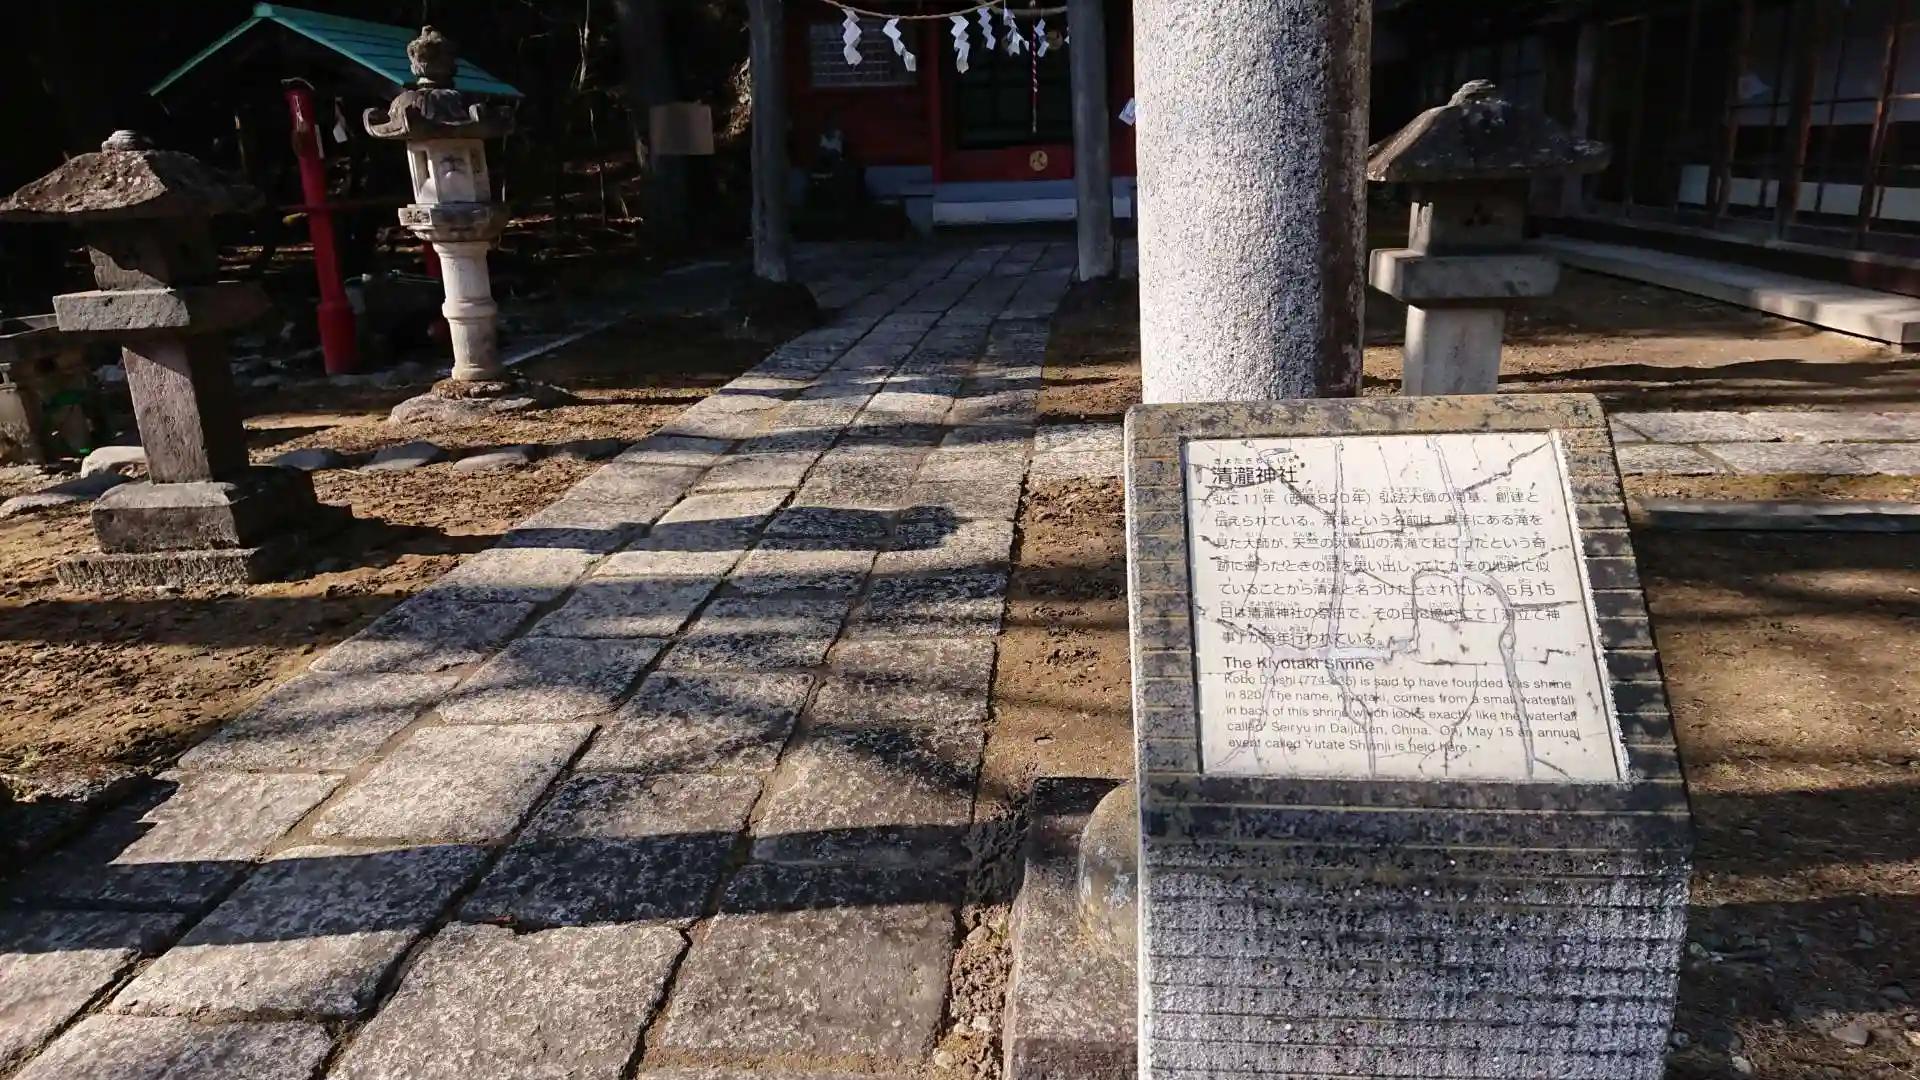 きよたきじんじゃ
清瀧神社
弘仁11年(西暦820年)弘法大師の開基、創建と
伝えられている。清滝という名前は、裏手にある滝を
見た大師が、天竺の大鷲山の清滝で起こったという奇
跡に遭ったときの話を思い出し、ここがその地形に似
ていることから清滝と名づけたとされている。5月15
日は清瀧神社の祭日で、その日に境内にて「湯立て神
事」が毎年行われている。
The Kiyotaki Shrine
Kobo Daishi (774-835) is said to have founded this shrine
in 820. The name, Kiyotaki, comes from a small waterfall
in back of this shrine which looks exactly like the waterfall
called Seiryu in Daijusen, China. On, May 15 an annual
event called Yutate Shinnji is held here.